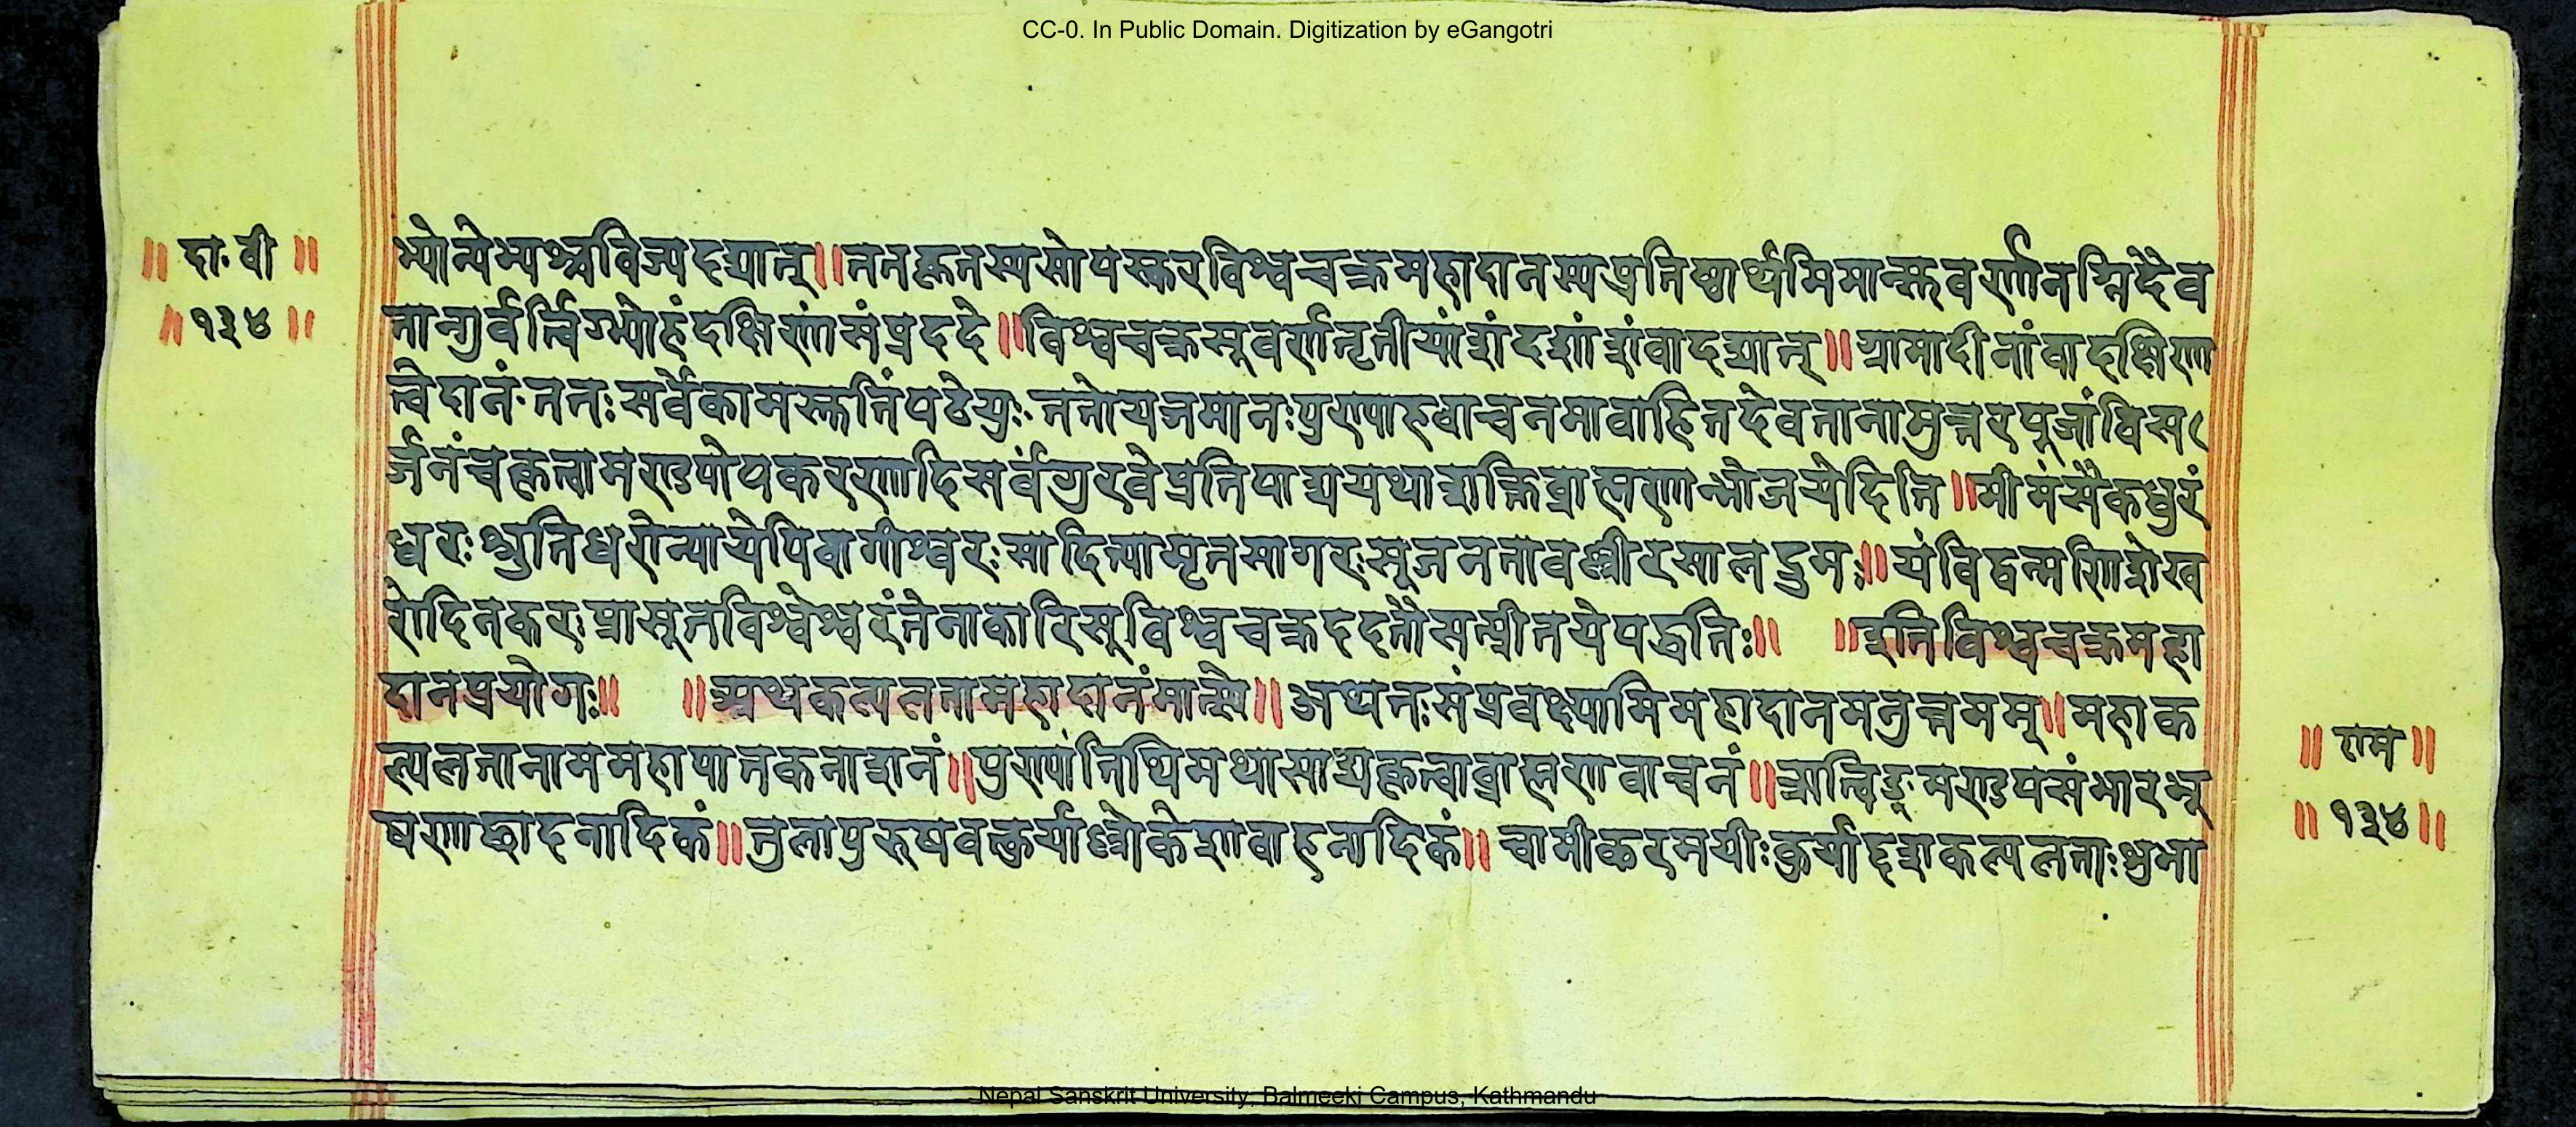 CC-0. In Public Domain. Digitization by eGangotri
॥ दा॰ वी ॥
॥ १३४ ॥
भ्योन्येभ्यश्चविभज्यदद्यात्॥ततःकृतस्यसोपस्करविश्वचक्रमहादानस्यप्रतिष्ठार्थमिमान्सुवर्णानग्निदैव
तान्गुर्वर्त्विग्भ्योहंदक्षिणांसंप्रददे॥विश्वचक्रसुवर्णतृतीयांशंदशांशंवादद्यात्॥ग्रामादीनांवादक्षिणा
त्वेदानं॰ततःसर्वेकामस्तुतिंपठेयुः॰ततोयजमानःपुण्याहवाचनमावाहितदेवतानामुत्तरपूजांविस
र्जनंचकृत्वामण्डपोपकरणादिसर्वंगुरवेप्रतिपाद्ययथाशक्तिब्राह्मणान्भोजयेदिति॥मीमंसैकधुरं
धरः श्रुतिधरोन्यायेपिवागीश्वरः सादित्यामृतसागरःसूजनतावश्लीरसालद्रुमः॥यंविद्वन्मणिशेख
रोदिनकरःप्रासूतविश्वेश्वरंतेनाकारिसूविश्वचक्रददतौसत्प्रीतयेपद्धतिः॥ ॥इतिविश्वचक्रमहा
दानप्रयोगः॥ ॥अथकल्पलतामहादानंमात्स्ये॥अथतःसंप्रवक्ष्यामिमहादानमनुत्तमम्॥महाक
ल्पलतानाममहापातकनाशनं॥पुण्यांतिथिमथासाद्यकृत्वाब्राह्मणवाचनं॥ऋत्विङ्मण्डपसंभारभू
षणाछादनादिकं॥तुलापुरुषवत्कुर्याल्लोकेशावाहनादिकं॥चामीकरमयीःकुर्याद्दशकल्पलताःशुभा
॥ राम ॥
॥ १३४ ॥
Nepal Sanskrit University, Balmeeki Campus, Kathmandu